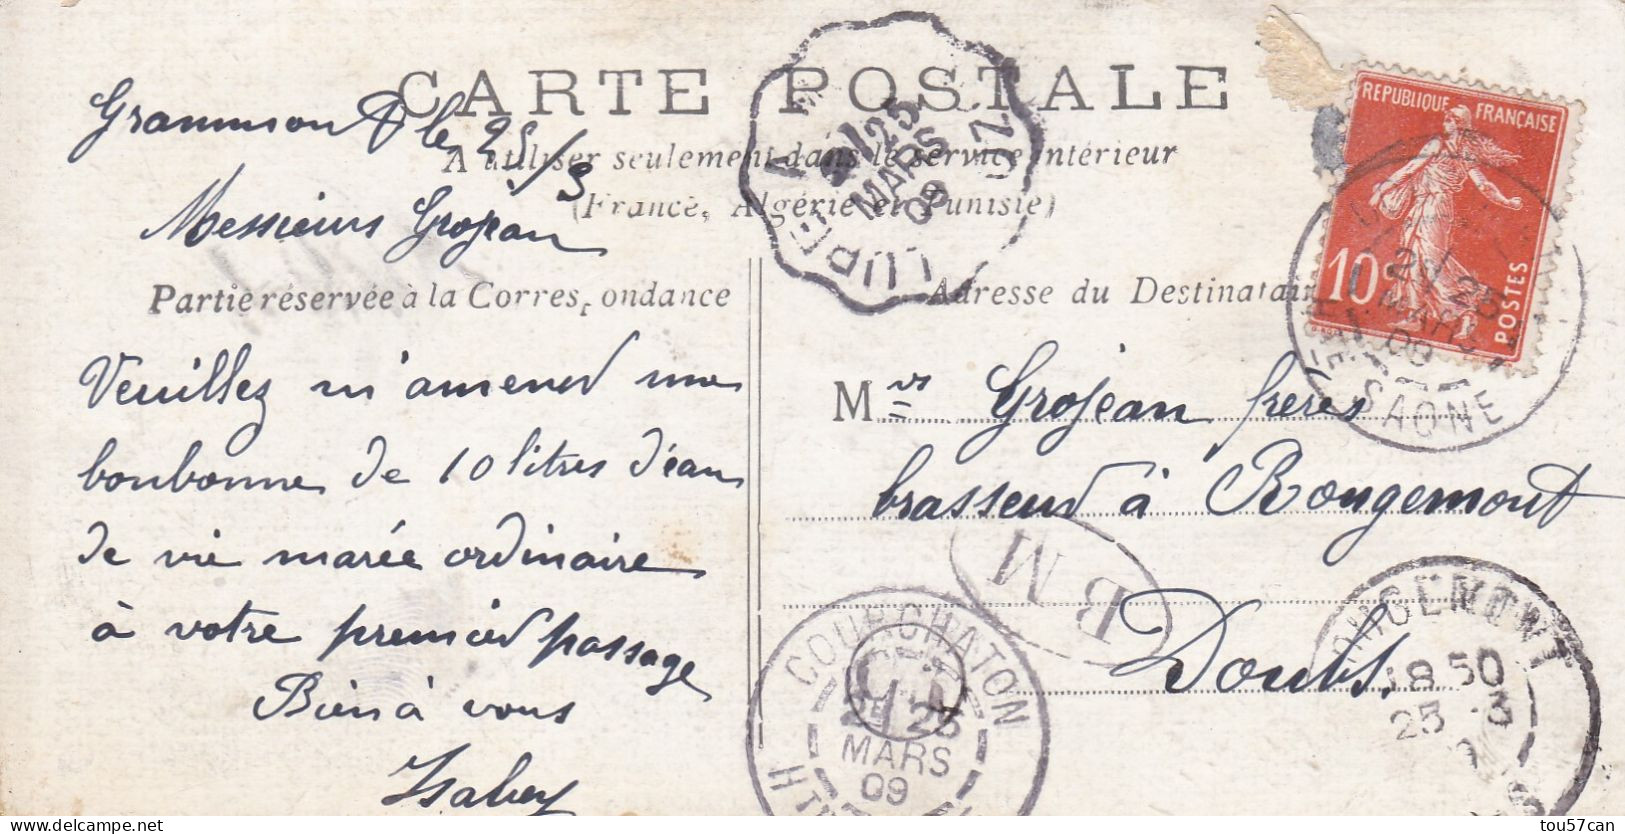 CARTE POSTALE
A utiliser seulement dans le service intérieur
(France, Algérie et Tunisie)
Grammont le 25/3
Messieurs Grojean
Partie réservée à la Correspondance
Veuillez m'amener une
bonbonne de 10 litres d'eau
de vie marée ordinaire
à votre premier passage
Bien à vous
Isabey
Adresse du Destinatair
Mrs Grojean freres
brasseur à Rougemont
Doubs.
REPUBLIQUE FRANÇAISE
10c
POSTES
LURE A
25
MARS
09
25
MARS
SAONE
BM
COURCHATON
25
MARS
09
HTE
ROUGEMONT
18 50
25 3
tou57can